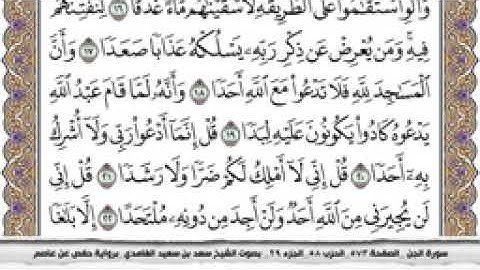 وَأَلَّوِ ٱسْتَقَـٰمُوا۟ عَلَى ٱلطَّرِيقَةِ لَأَسْقَيْنَـٰهُم مَّآءً غَدَقًا ١٦ لِّنَفْتِنَهُمْ
فِيهِ ۚ وَمَن يُعْرِضْ عَن ذِكْرِ رَبِّهِۦ يَسْلُكْهُ عَذَابًا صَعَدًا ١٧ وَأَنَّ
ٱلْمَسَـٰجِدَ لِلَّهِ فَلَا تَدْعُوا۟ مَعَ ٱللَّهِ أَحَدًا ١٨ وَأَنَّهُۥ لَمَّا قَامَ عَبْدُ ٱللَّهِ
يَدْعُوهُ كَادُوا۟ يَكُونُونَ عَلَيْهِ لِبَدًا ١٩ قُلْ إِنَّمَآ أَدْعُوا۟ رَبِّى وَلَآ أُشْرِكُ
بِهِۦٓ أَحَدًا ٢٠ قُلْ إِنِّى لَآ أَمْلِكُ لَكُمْ ضَرًّا وَلَا رَشَدًا ٢١ قُلْ إِنِّى
لَن يُجِيرَنِى مِنَ ٱللَّهِ أَحَدٌ وَلَنْ أَجِدَ مِن دُونِهِۦ مُلْتَحَدًا ٢٢ إِلَّا بَلَـٰغًا
سورة الجن _ الصفحة ٥٧٣ _ الحزب ٥٨ _ الجزء ٢٩ _ بصوت الشيخ سعد بن سعيد الغامدي _ برواية حفص عن عاصم